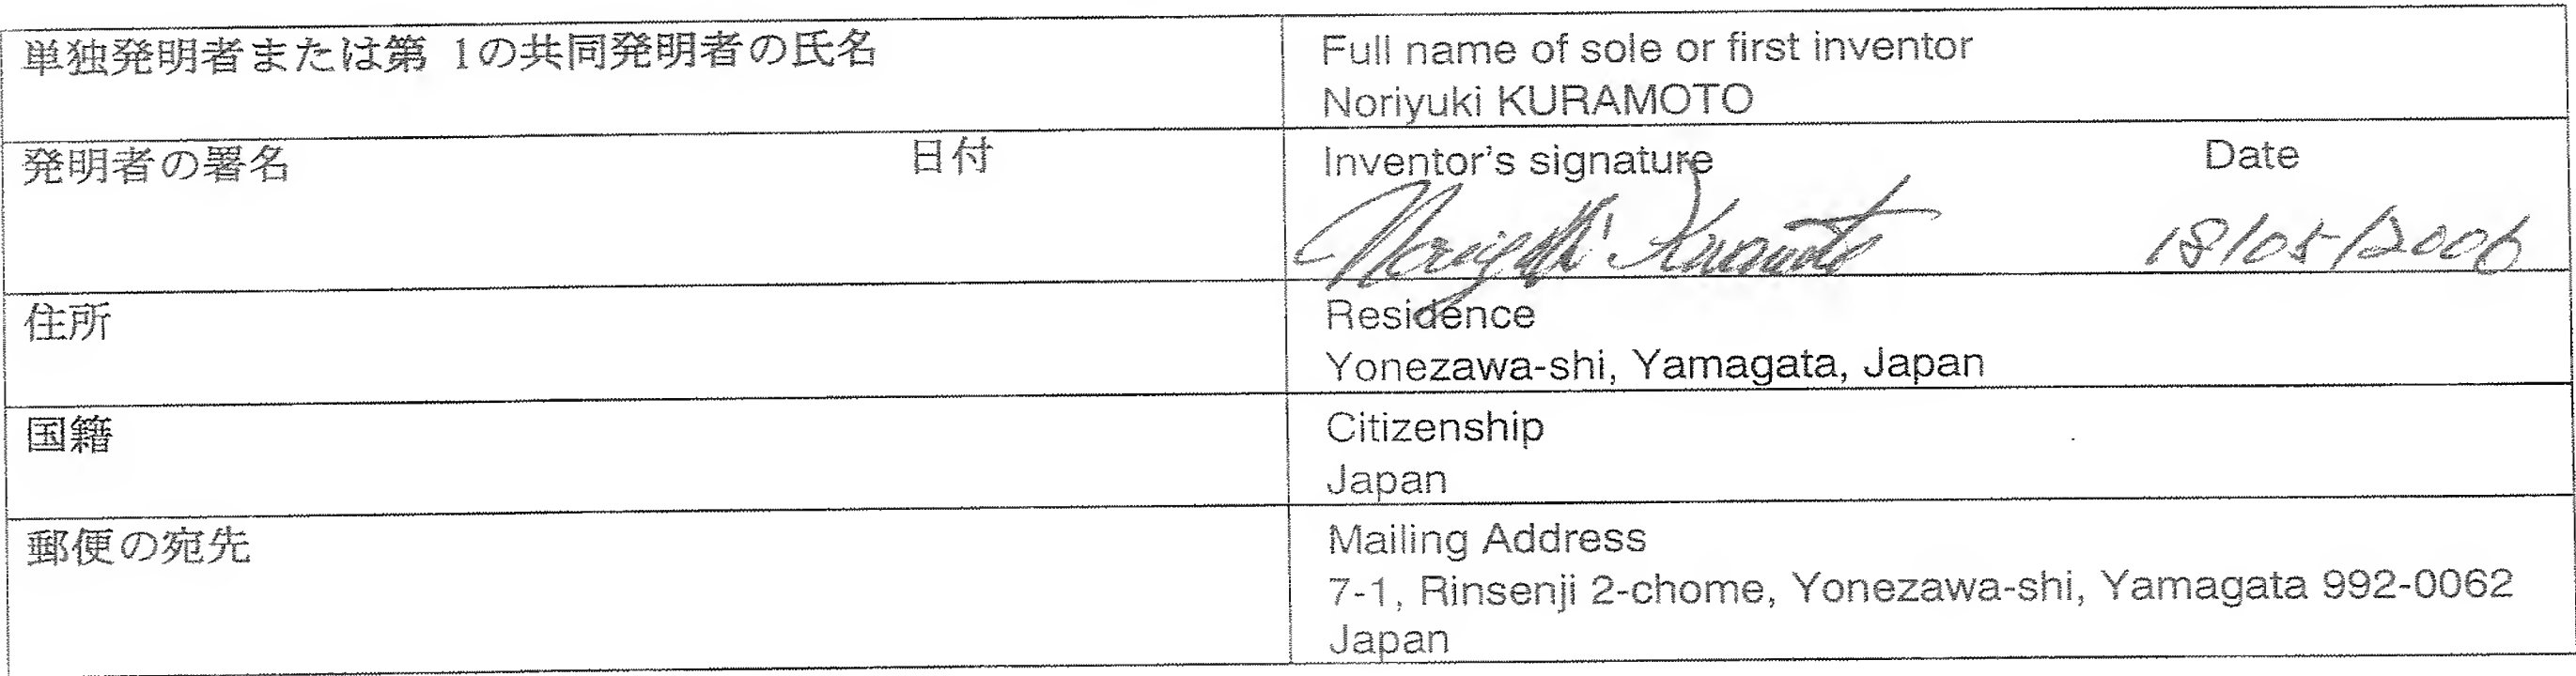 単独発明者または第 1の共同発明者の氏名
Full name of sole or first inventor
Noriyuki KURAMOTO
発明者の署名 日付
Inventor's signature Date
Noriyuki Kuramoto 18/05/2006
住所
Residence
Yonezawa-shi, Yamagata, Japan
国籍
Citizenship
Japan
郵便の宛先
Mailing Address
7-1, Rinsenji 2-chome, Yonezawa-shi, Yamagata 992-0062
Japan